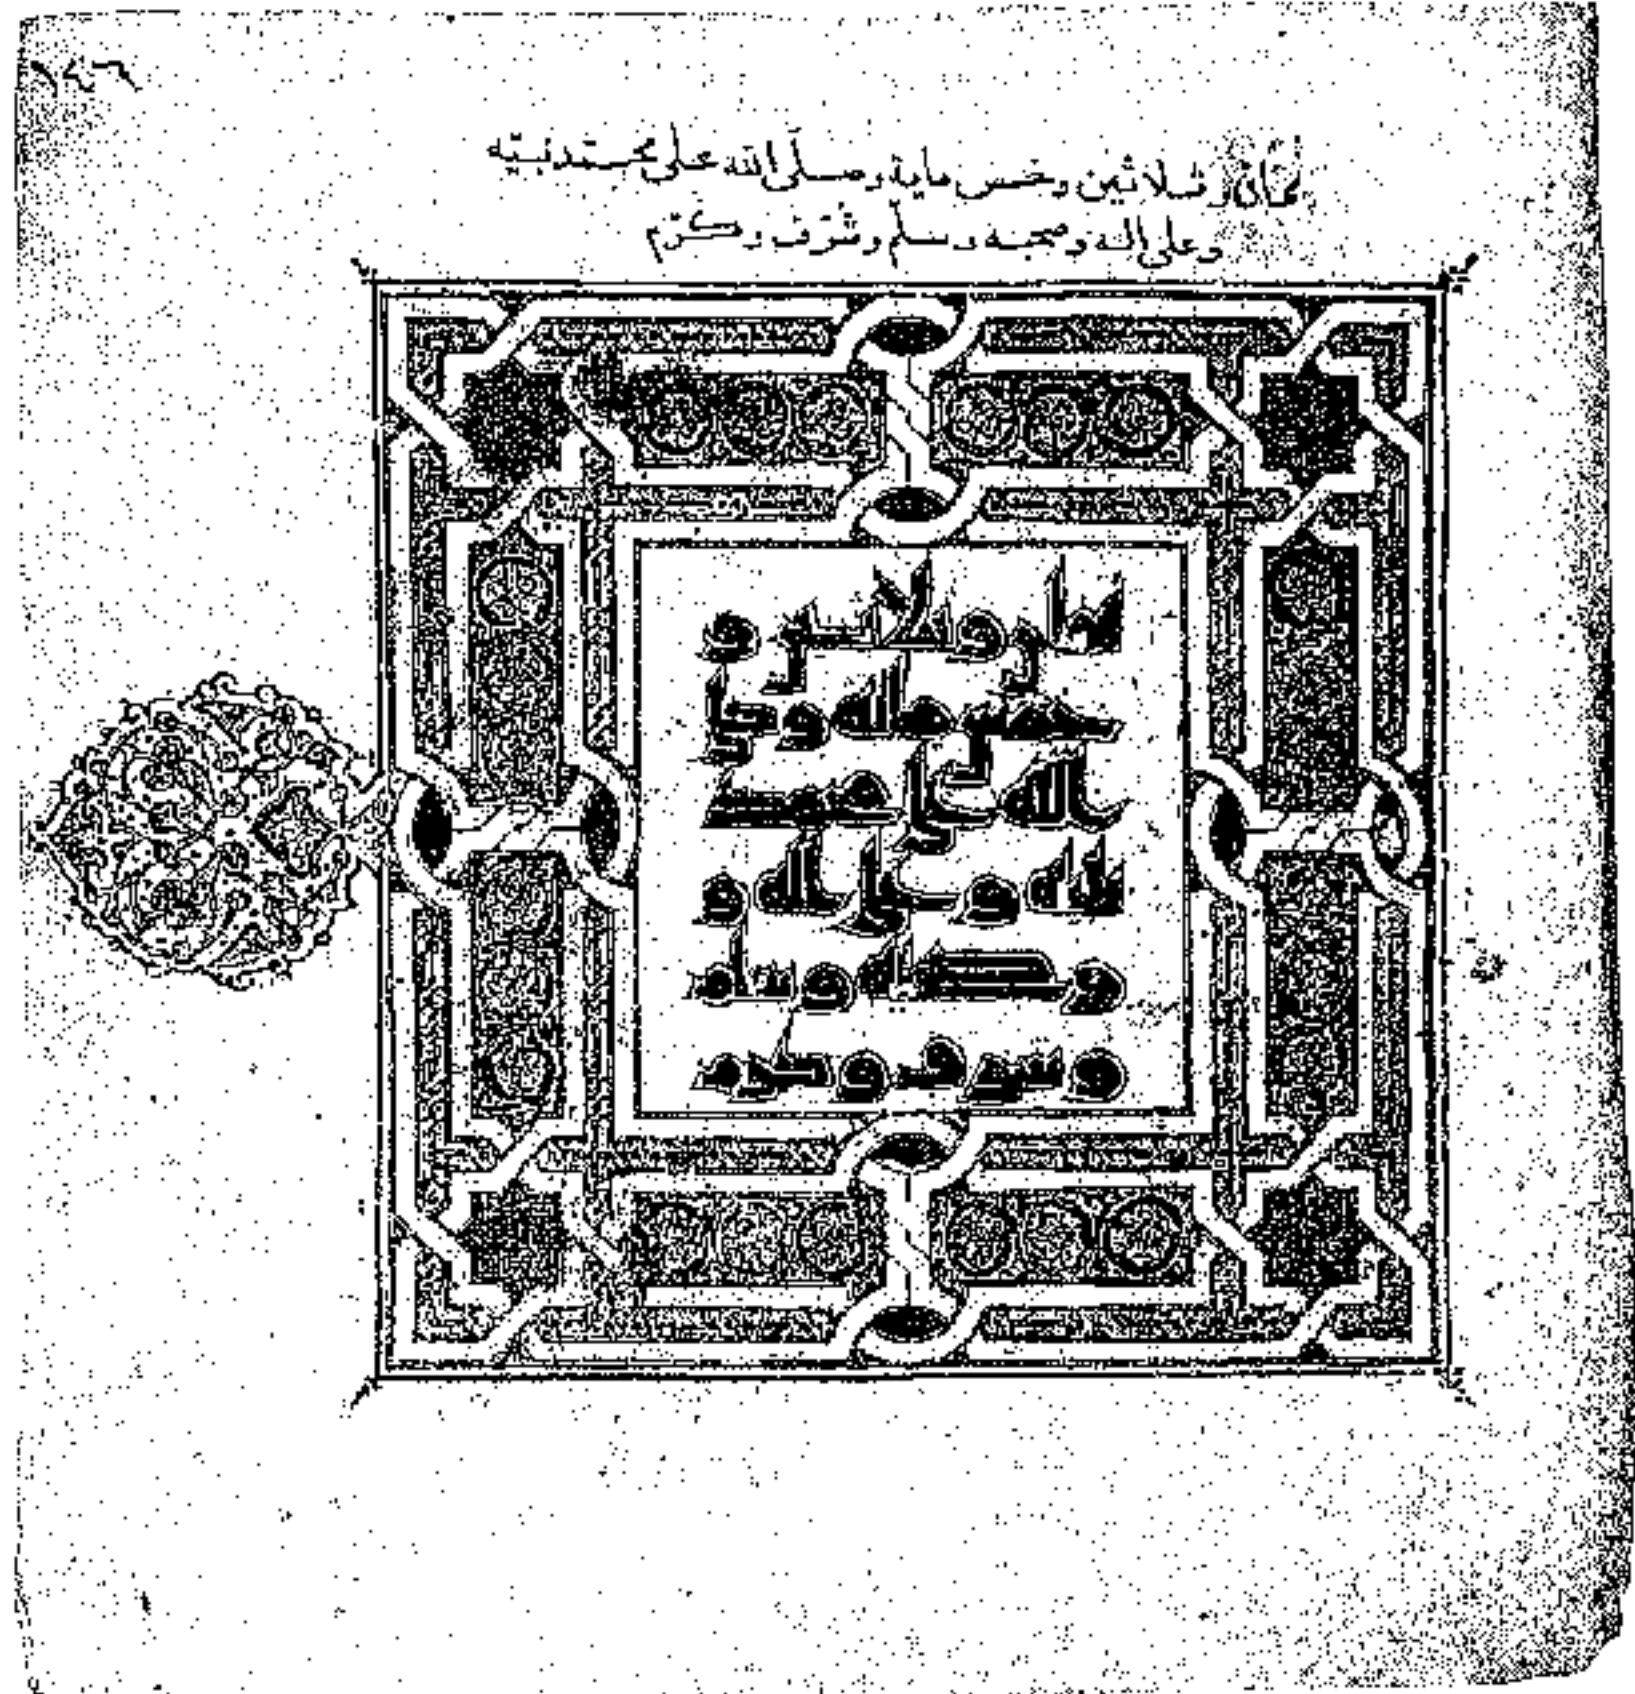 ١٤٦
ثمان وثلاثين وخمس ماية وصلى الله على محمد نبيه
وعلى اله وصحبه وسلم وشرف وكرم
ثمان وثلاثين و
خمس مائة وصلى
الله على محمد
نبيه وعلى اله و
وصحبه وسلم
وشرف وكرم